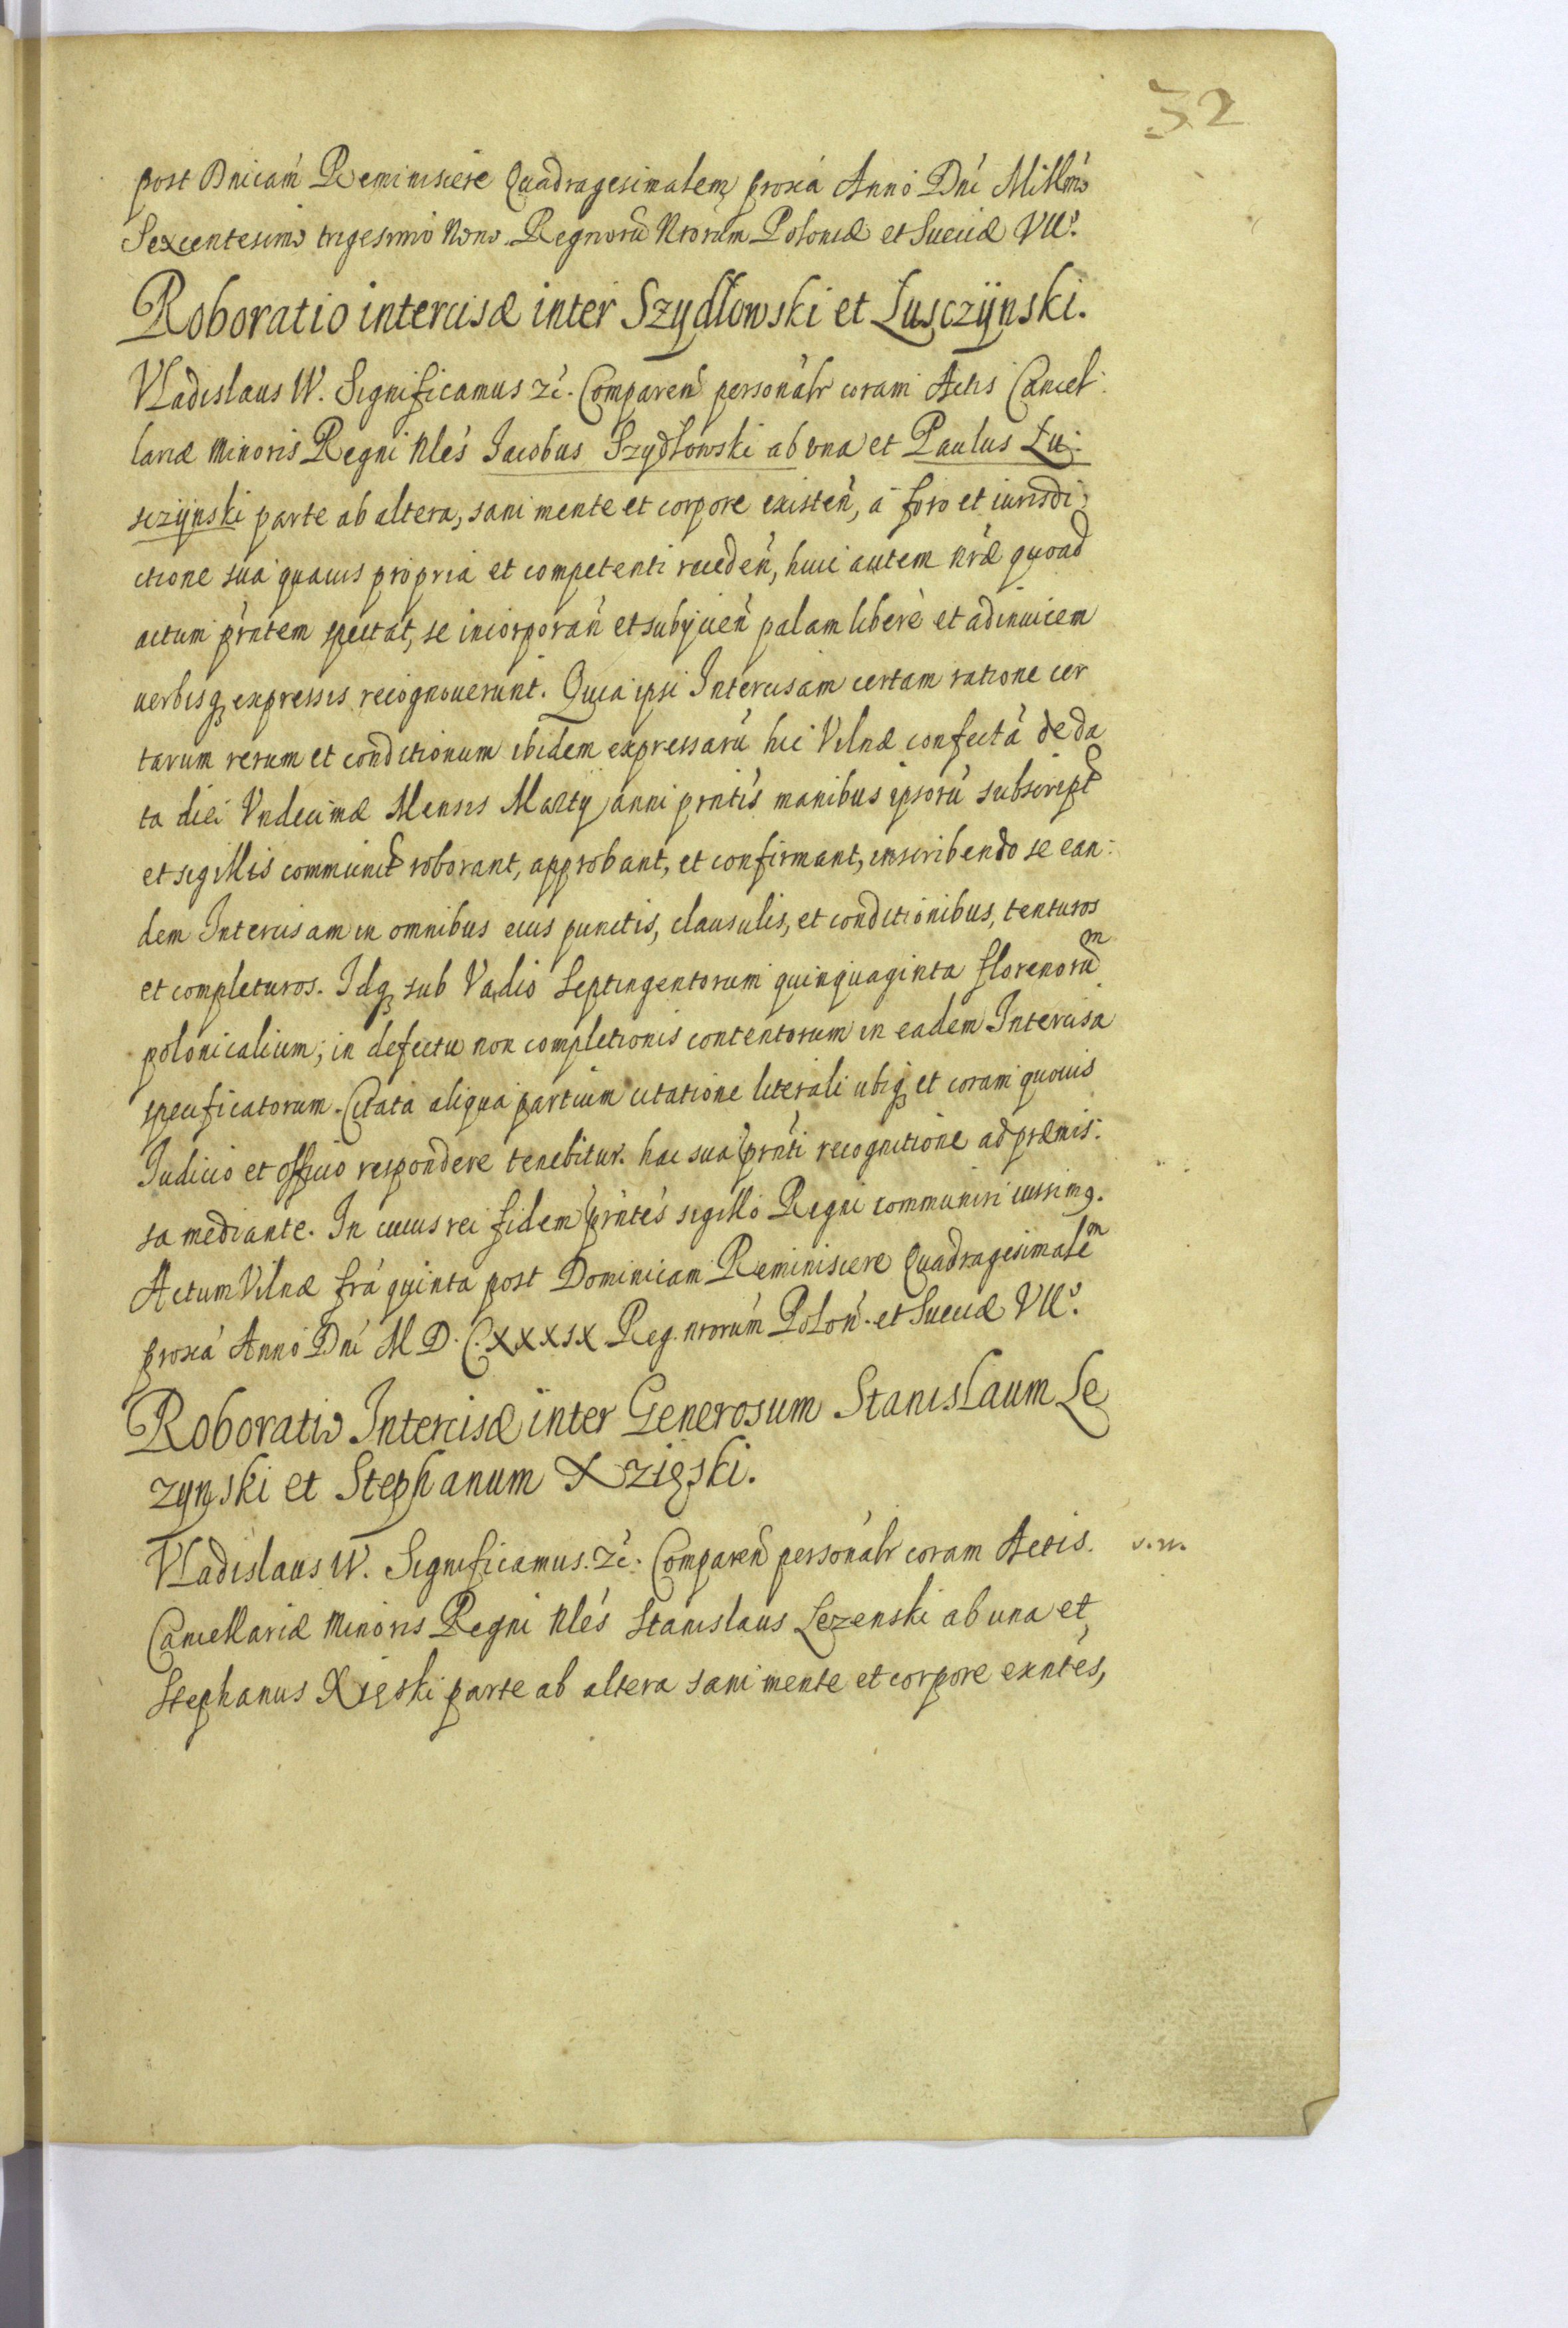 32
post Dnicam̃ Reminiscere Quadragesimalem proxã Anno Dñi Millm̃o
Sexcentesimo trigesimo Nono. Regnorũ Nrorũm Poloniæ et Sueciæ VIIº.
Roboratio intercisæ inter Szydłowski et Łusczÿnski.
Vladislaus IV. Significamus zc̃. Comparen̄ personal̃r coram Actis Cancel:
lariæ Minoris Regni Nlẽs Jacobus Szydłowski ab vna et Paulus Łu:
sczÿnski parte ab altera, sani mente et corpore existen̄, a foro et iurisdi:
ctione sua quauis propria et competenti receden̄, huic autem nræ̃ quoad
actum prñtem spectat, se incorporan̄ et subÿcien̄ palam liberè et adinuicem
uerbisq; expressis recognouerunt. Quia ipsi Intercisam certam ratione cer
tarum rerum et conditionum ibidem expressarũ hic Vilnæ confectã de da
ta diei Vndecimæ Mensis Martÿ anni prñtis manibus ipsorũ subscript
et sigillis communit roborant, approbant, et confirmant, inscribendo se ean:
dem Intercisam in omnibus eius punctis, clausulis, et conditionibus, tenturos
et completuros. Idq; sub Vadio Septingentorum quinquaginta florenorũm
polonicalium; in defectu non completionis contentorum in eadem Intercisa
specificatorum. Citata aliqua partium citatione literali ubiq; et coram quouis
Iudicio et officio respondere tenebitur. hac sua prñti recognitione ad præmis:
sa mediante. In cuius rei fidem prñtes sigillo Regni communiri iussim9.
Actum Vilnæ frã quinta post Dominicam Reminiscere Quadragesimalem
proxã Anno Dñi M D. C. XXXIX Reg. nrorum̃ Polon̄. et Sueciæ VIIº.
Roboratio Intercisæ inter Generosum Stanislaum Le
zynski et Stephanum Xzięski.
Vladislaus IV. Significamus. zc̃. Comparen̄ personal̃r coram Actis.
Cancellariæ Minoris Regni Nlẽs Stanislaus Lezenski ab una et
Stephanus Xięski parte ab altera sani mente et corpore exntẽs,